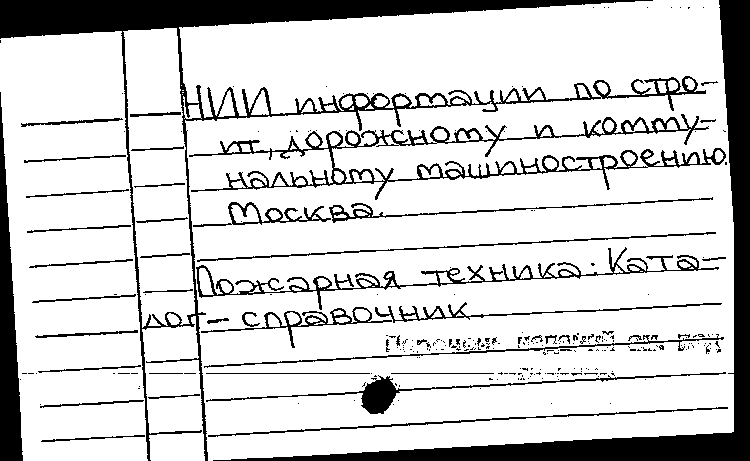 НИИ информации по стро-
ит., дорожному и комму-
нальному машиностроению.
Москва.
Пожарная техника: Ката-
лог-справочник.
Перечень изданий см. под